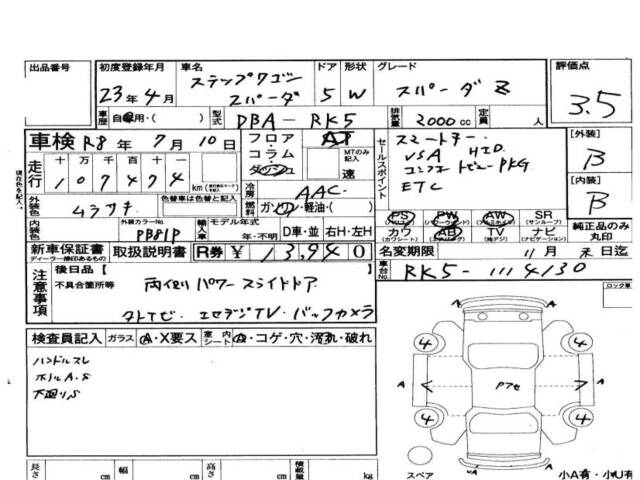 出品番号 初度登録年月 車名 ドア 形状 グレード 評価点
23年4月 ステップワゴン スパーダ 5 W スパーダ Z 3.5
車歴 自家用・( ) 型式 DBA-RK5 排気量 2000cc 定員 人
車検 R8年7月10日 フロア・コラム・ダッシュ AT MTのみ記入 速
セールスポイント スマートキー HID
VSA コンフォートビューPKG
ETC
[外装] B
[内装] B
走行 十 万 千 百 十 一
107474 km
現在色を記入→
冷房 AAC
外装色 ムラサキ 色替車は色替と記入 燃料 ガソリン・軽油・( )
外装カラーNo. PB81P 輸入車 モデル年式 年・不明 D車・並 右H・左H
PS (パワステ) PW (パワーウィンドウ) AW (アルミホイル) SR (サンルーフ)
カワ (カワシート) AB (エアバック) TV (地デジ) ナビ (ナビゲーション)
純正品のみ丸印
新車保証書 ディーラー捺印あるもの 取扱説明書 R券 ¥13,940
名変期限 11月末日迄
車台No. RK5-1114130
注意事項 後日品【 】
不具合箇所等 両側パワースライドドア
タテビ・エセデジTV・バックカメラ
ロック車
検査員記入 ガラス A・X要ス 室内 シート A・コゲ・穴・汚れ・破れ
ハンドルスレ
ホイルA.S
下廻りS
4 A 4
A Pアセ A
4 4
A
長さ cm 幅 cm 高さ cm 積載量 kg
スペア 小A有・小U有